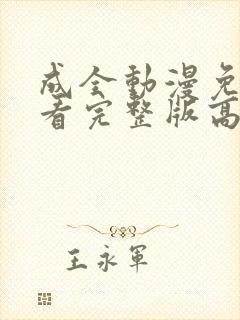 成全動漫免
看完整版高
王永軍